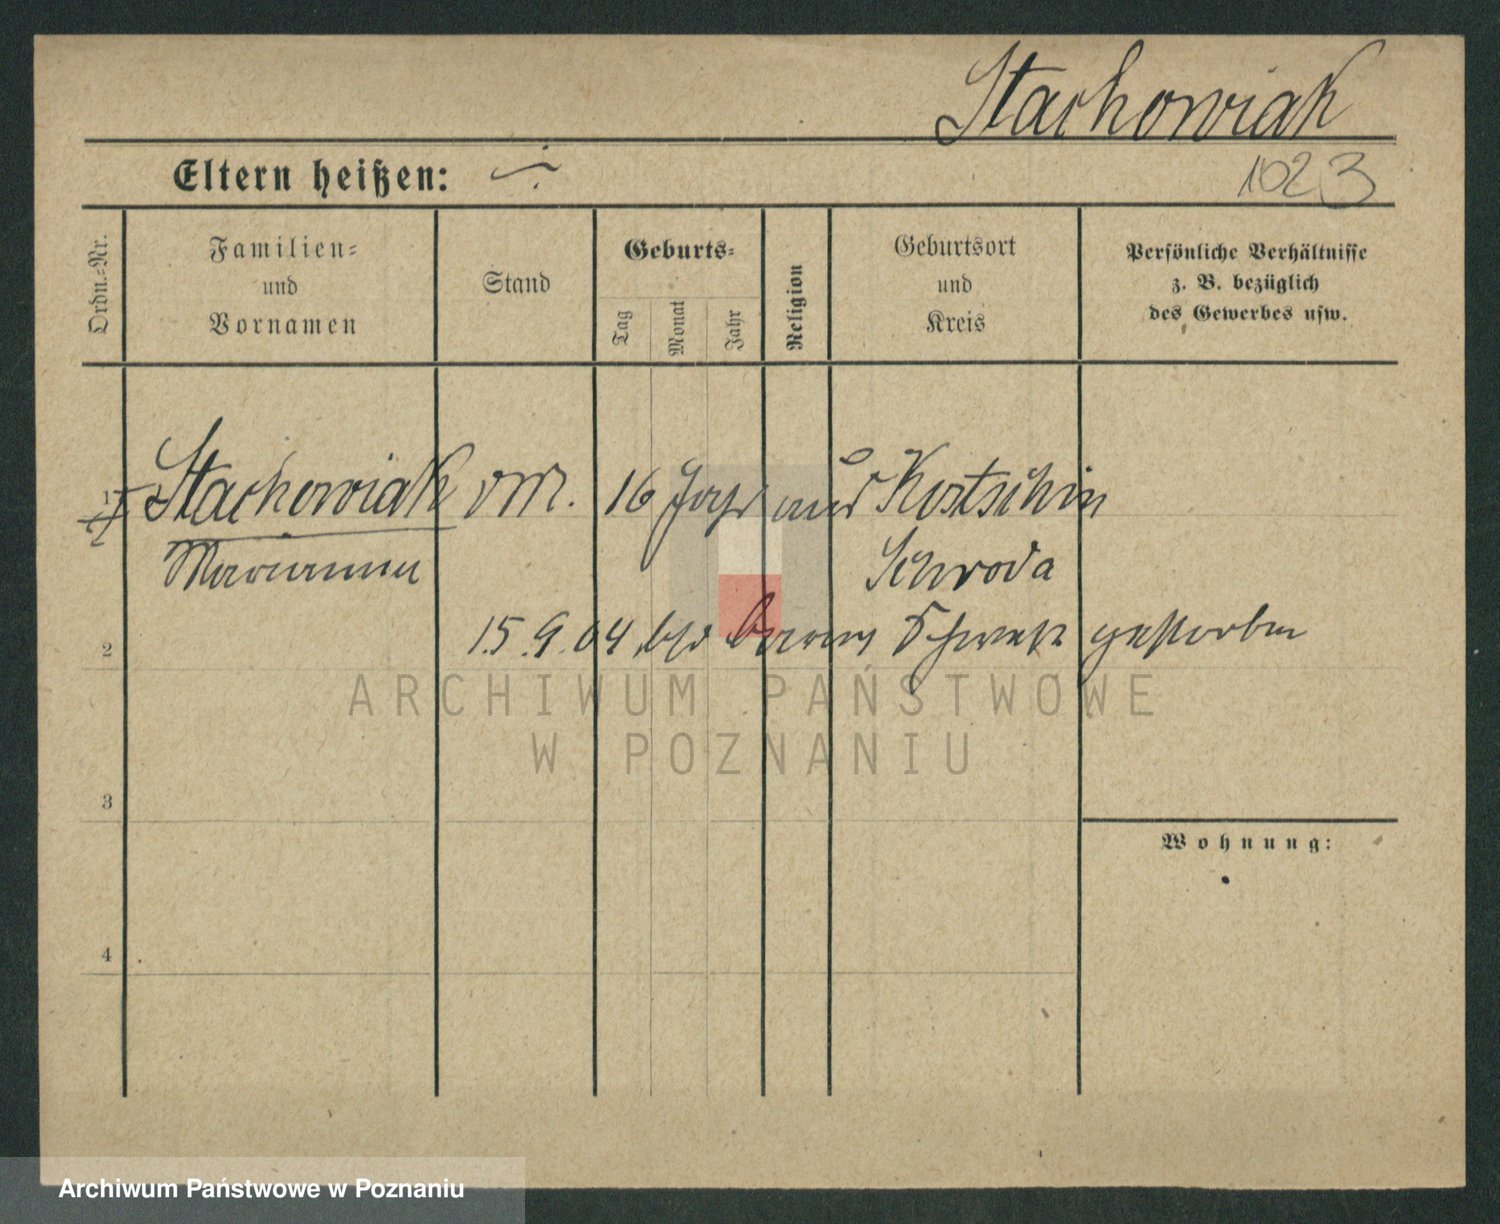 Stachowiak
Eltern heißen:
1023
Ordn.-Nr.
Familien-
und
Vornamen
Stand
Geburts-
Tag
Monat
Jahr
Religion
Geburtsort
und
Kreis
Persönliche Verhältnisse
z. B. bezüglich
des Gewerbes usw.
1 Stachowiak 16 Jahr aus Kostschin
Marianna Schroda
2 15.9.04 bei gestorben
ARCHIWUM PAŃSTWOWE
W POZNANIU
3
Wohnung:
4
Archiwum Państwowe w Poznaniu